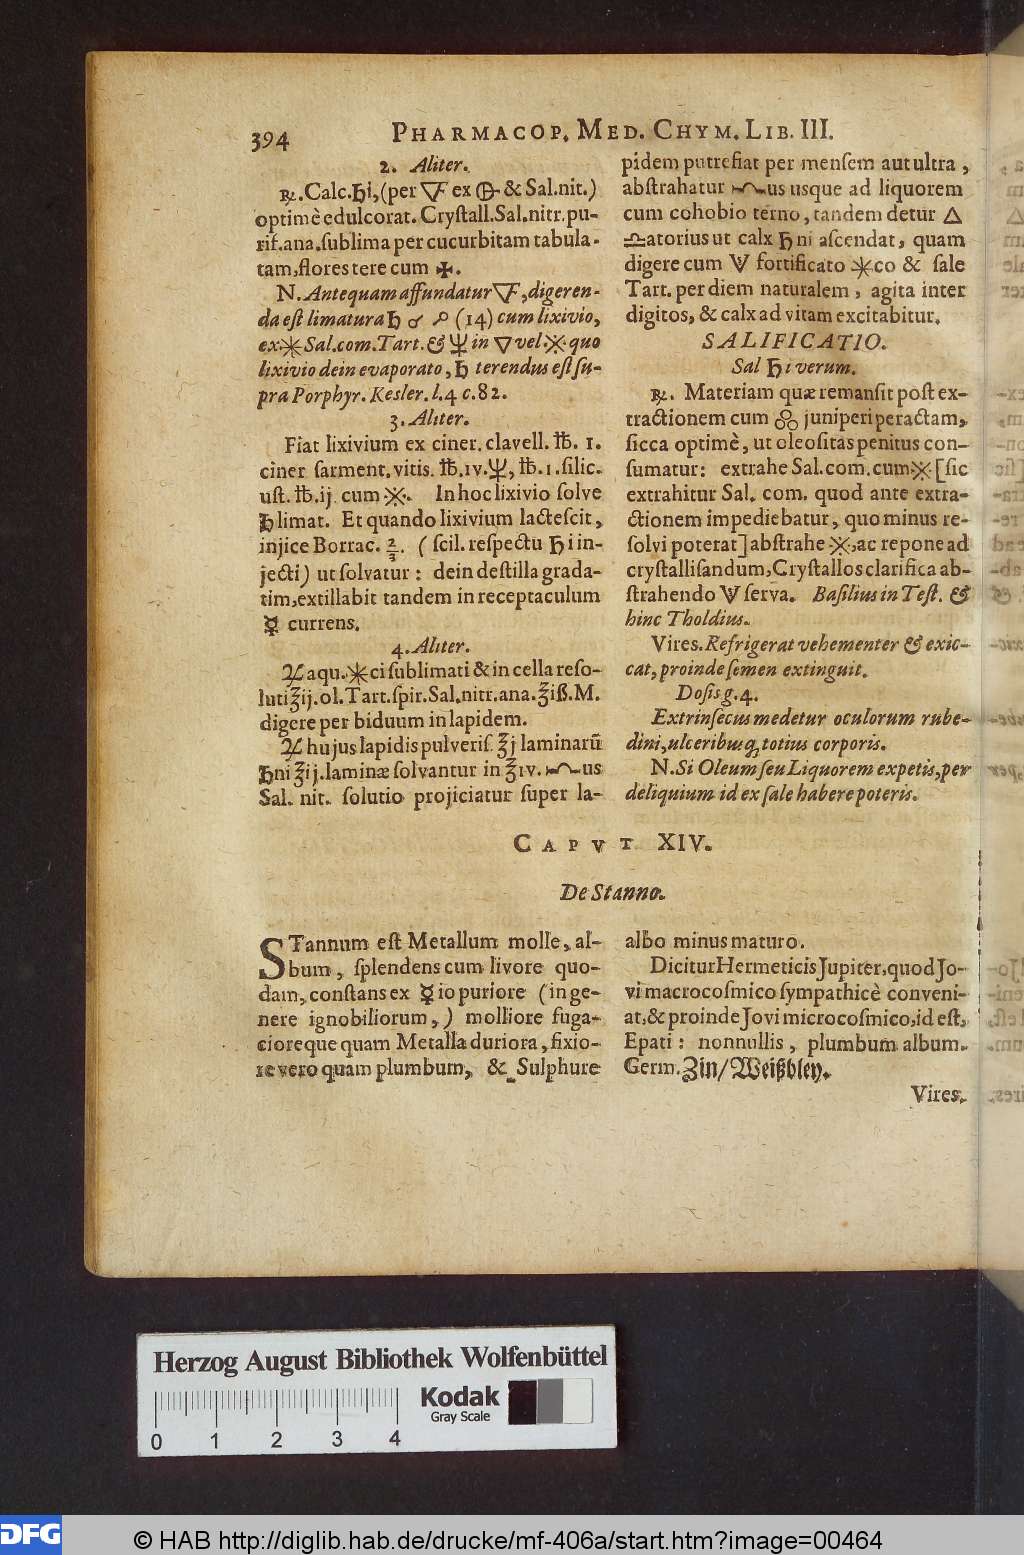 394 PHARMACOP. MED. CHYM. LIB. III.
2. Aliter.
℞. Calc. ♄i, (per 🜅 ex 🜖 & Sal. nit.)
optimè edulcorat. Crystall. Sal. nitr. pu-
rif. ana. sublima per cucurbitam tabula-
tam, flores tere cum 🜊.
N. Antequam affundatur 🜅, digeren-
da est limatura ♄ (14) cum lixivio,
ex ✳ Sal. com. Tart. & 🜏 in ▽ vel ※ quo
lixivio dein evaporato, ♄ terendus est su-
pra Porphyr. Kesler. l. 4 c. 82.
3. Aliter.
Fiat lixivium ex ciner. clavell. ℔. 1.
ciner sarment. vitis. ℔. iv. ♆, ℔. 1. silic.
ust. ℔. ij cum ※. In hoc lixivio solve
♄ limat. Et quando lixivium lactescit,
injice Borrac. 2/3. (scil. respectu ♄ i in-
jecti) ut solvatur: dein destilla grada-
tim, extillabit tandem in receptaculum
☿ currens.
4. Aliter.
♃ aqu. ✳ci sublimati & in cella reso-
luti ℥ij. ol. Tart. spir. Sal. nitr. ana. ℥iß. M.
digere per biduum in lapidem.
♃ hujus lapidis pulveris. ℥j laminarũ
♄ni ℥ij. laminæ solvantur in ℥iv. us
Sal. nit. solutio projiciatur super la-
pidem putrefiat per mensem aut ultra,
abstrahatur us usque ad liquorem
cum cohobio terno, tandem detur △
♎atorius ut calx ♄ni ascendat, quam
digere cum fortificato ✳co & sale
Tart. per diem naturalem, agita inter
digitos, & calx ad vitam excitabitur.
SALIFICATIO.
Sal ♄i verum.
℞. Materiam quæ remansit post ex-
tractionem cum juniperi peractam,
sicca optimè, ut oleositas penitus con-
sumatur: extrahe Sal. com. cum ※ [sic
extrahitur Sal. com. quod ante extra-
ctionem impediebatur, quo minus re-
solvi poterat] abstrahe ※, ac repone ad
crystallisandum, Crystallos clarifica ab-
strahendo serva. Basilius in Test. &
hinc Tholdius.
Vires. Refrigerat vehementer & exic-
cat, proinde semen extinguit.
Dosis g. 4.
Extrinsecus medetur oculorum rube-
dini, ulceribusq; totius corporis.
N. Si Oleum seu Liquorem expetis, per
deliquium id ex sale habere poteris.
CAPVT XIV.
De Stanno.
STannum est Metallum molle, al-
bum, splendens cum livore quo-
dam, constans ex ☿io puriore (in ge-
nere ignobiliorum,) molliore fuga-
cioreque quam Metalla duriora, fixio-
re vero quam plumbum, & Sulphure
albo minus maturo.
Dicitur Hermeticis Jupiter, quod Jo-
vi macrocosmico sympathicè conveni-
at, & proinde Jovi microcosmico, id est,
Epati: nonnullis, plumbum album.
Germ. Zin/ Weißbley.
Vires.
Herzog August Bibliothek Wolfenbüttel
Kodak
Gray Scale
0 1 2 3 4
DFG
© HAB http://diglib.hab.de/drucke/mf-406a/start.htm?image=00464